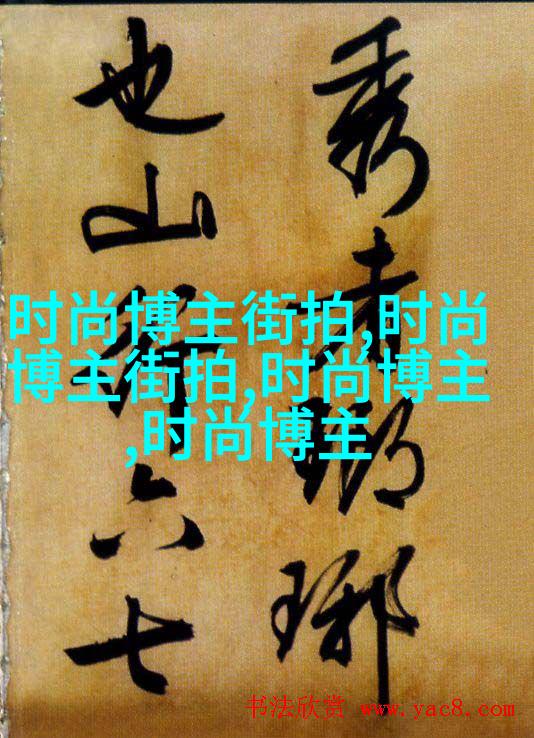 秀者琅琊
也山行六七
时尚博主街拍,时尚
博主街拍,时尚博主
,时尚博主
书法欣赏 www.yac8.com